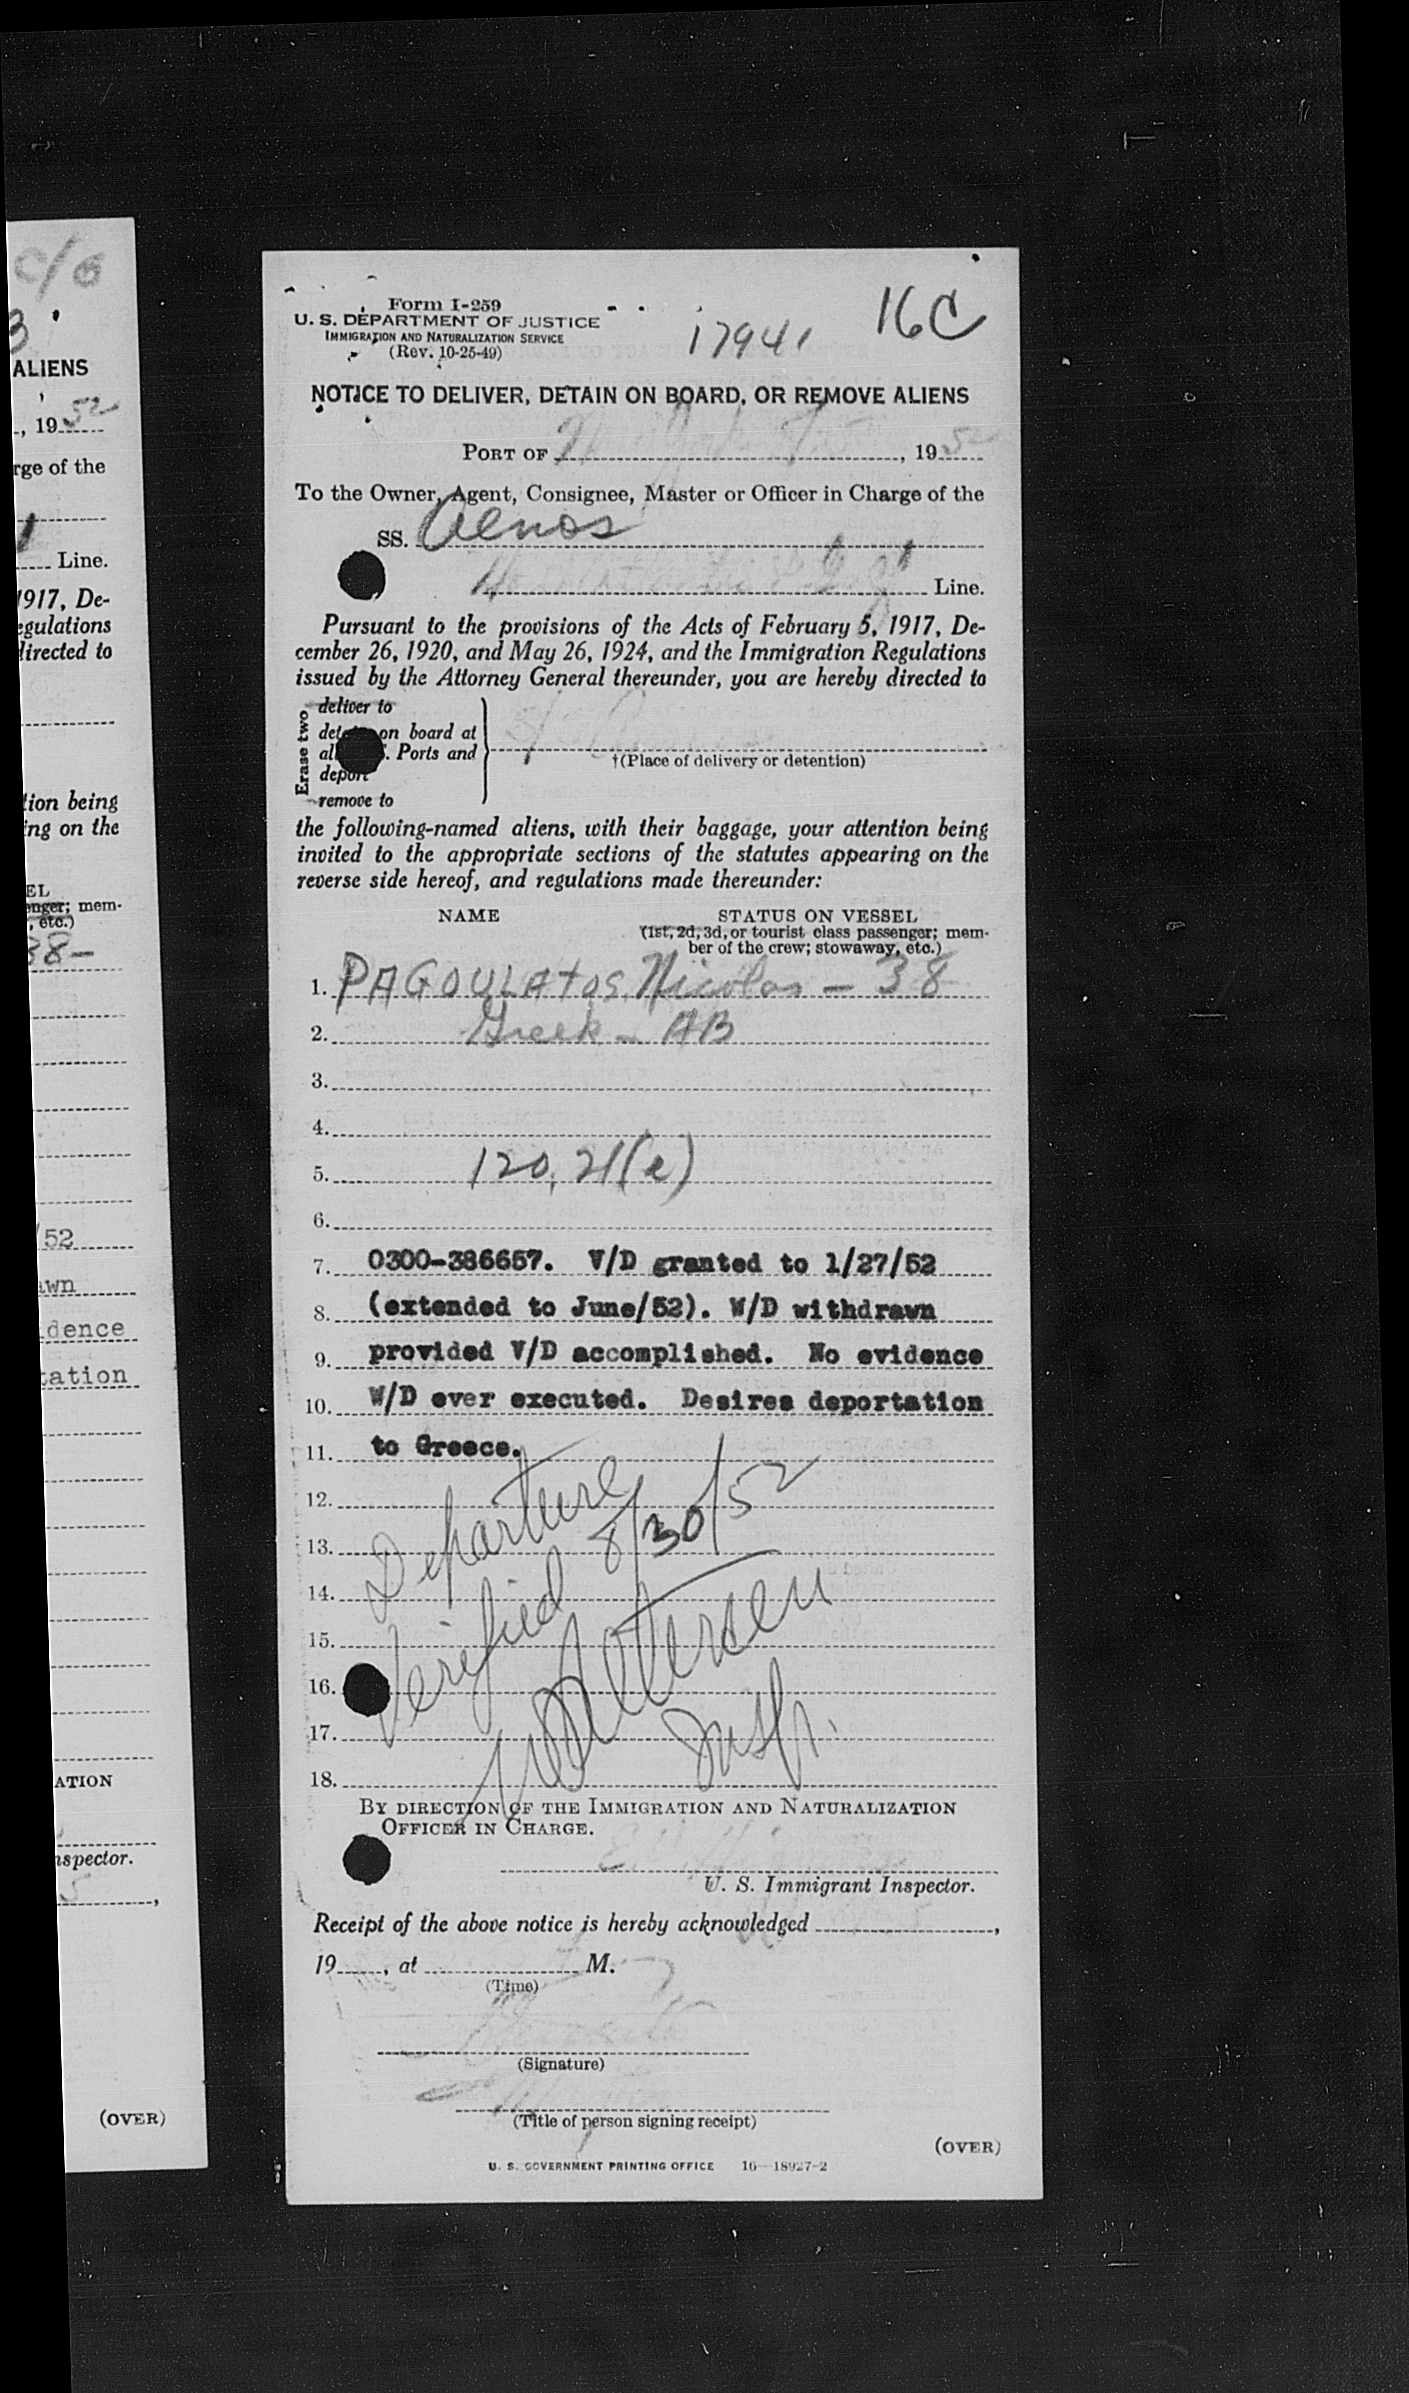 C/O
3
ALIENS
, 1952
rge of the
Line.
1917, De-
egulations
directed to
tion being
ing on the
EL
enger; mem-
, etc.)
38-
/52
awn
idence
tation
ATION
nspector.
5,
(OVER)
Form I-259
U. S. DEPARTMENT OF JUSTICE
IMMIGRATION AND NATURALIZATION SERVICE
(Rev. 10-25-49)
17941
16C
NOTICE TO DELIVER, DETAIN ON BOARD, OR REMOVE ALIENS
PORT OF , 1952
To the Owner, Agent, Consignee, Master or Officer in Charge of the
SS. Aenos
Line.
Pursuant to the provisions of the Acts of February 5, 1917, De-
cember 26, 1920, and May 26, 1924, and the Immigration Regulations
issued by the Attorney General thereunder, you are hereby directed to
Erase two
deliver to
on board at
Ports and
deport
remove to
†(Place of delivery or detention)
the following-named aliens, with their baggage, your attention being
invited to the appropriate sections of the statutes appearing on the
reverse side hereof, and regulations made thereunder:
NAME STATUS ON VESSEL
(1st, 2d, 3d, or tourist class passenger; mem-
ber of the crew; stowaway, etc.)
1. PAGOULATOS, Nicolas - 38
2. Greek - AB
3.
4.
5. 120, 21(e)
6.
7. 0300-386657. V/D granted to 1/27/52
8. (extended to June/52). W/D withdrawn
9. provided V/D accomplished. No evidence
10. W/D ever executed. Desires deportation
11. to Greece.
12.
13.
14.
15.
16.
17.
18.
Departure
Verified 8/30/52
Petersen
Insp.
BY DIRECTION OF THE IMMIGRATION AND NATURALIZATION
OFFICER IN CHARGE.
U. S. Immigrant Inspector.
Receipt of the above notice is hereby acknowledged ,
19 , at M.
(Time)
(Signature)
(Title of person signing receipt)
(OVER)
U. S. GOVERNMENT PRINTING OFFICE 16—18927-2